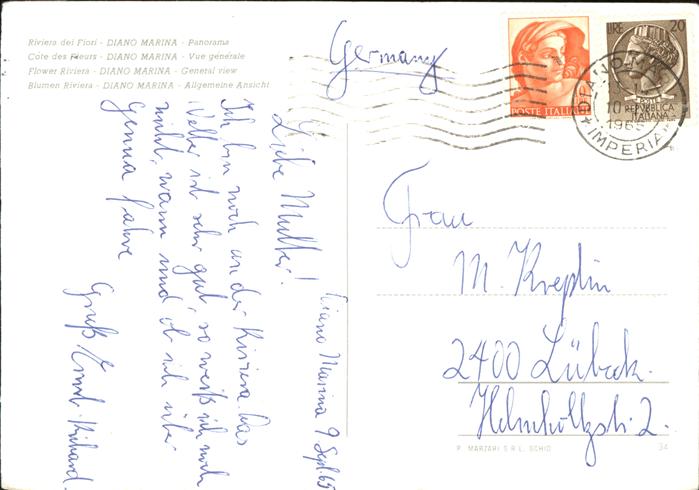 Riviera dei Fiori - DIANO MARINA - Panorama
Côte des Fleurs - DIANO MARINA - Vue générale
Flower Riviera - DIANO MARINA - General view
Blumen Riviera - DIANO MARINA - Allgemeine Ansicht
Germany
POSTE ITALIANE
LIRE 20
REPUBBLICA
ITALIANA
DIANO
10
1965
IMPERIA
Diano Marina 9 Sept. 65
Liebe Mutter!
Ich bin noch an der Riviera. Das
Wetter ist sehr gut, so weiß ich noch
nicht, wann und ob ich über
Genua fahre
Gruß Ernst-Richard
Frau
M. Kreplin
2400 Lübeck.
Helmholtzstr. 2.
P. MARZARI S R L. SCHIO
34